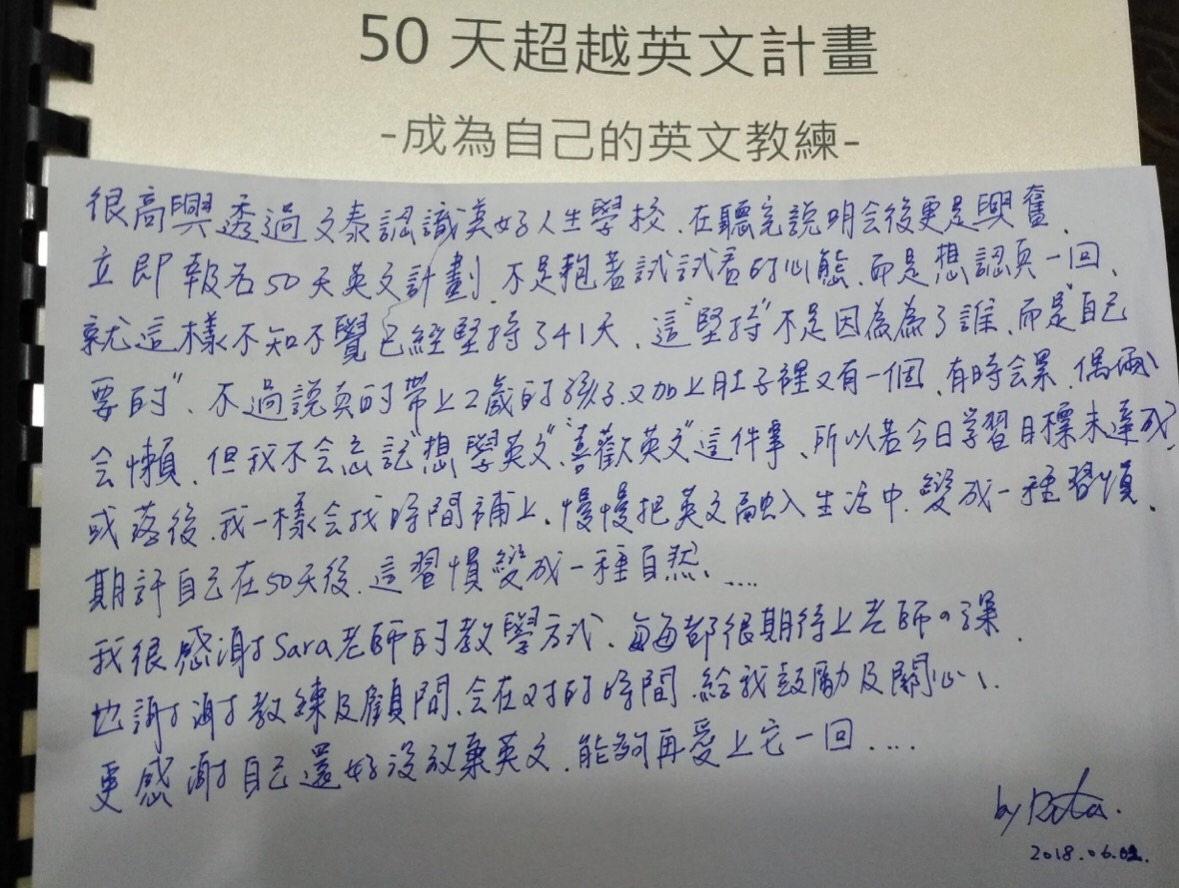 50 天超越英文計畫
-成為自己的英文教練-
很高興透過文泰認識英好人生學校、在聽完說明会後更是興奮、
立即報名50天英文計劃、不是抱著試試看的心態、而是想認真一回、
就這樣不知不覺已經堅持了41天、這"堅持"不是因為為了誰、而是"自己
要的"、不過說真的帶上2歲的孩子又加上肚子裡又有一個、有時会累、偶爾
会懶、但我不会忘記"想學英文""喜歡英文"這件事、所以若今日学習目標未達成
或落後、我一樣会找時間補上、慢慢把英文融入生活中、變成一種習慣、
期許自己在50天後、這習慣變成一種自然、....
我很感謝Sara老師的教學方式、每每都很期待上老師の課、
也謝謝教練及顧問、会在对的時間、給我鼓勵及關心、
更感謝自己還好沒放棄英文、能夠再愛上它一回....
by Rita.
2018.06.02.